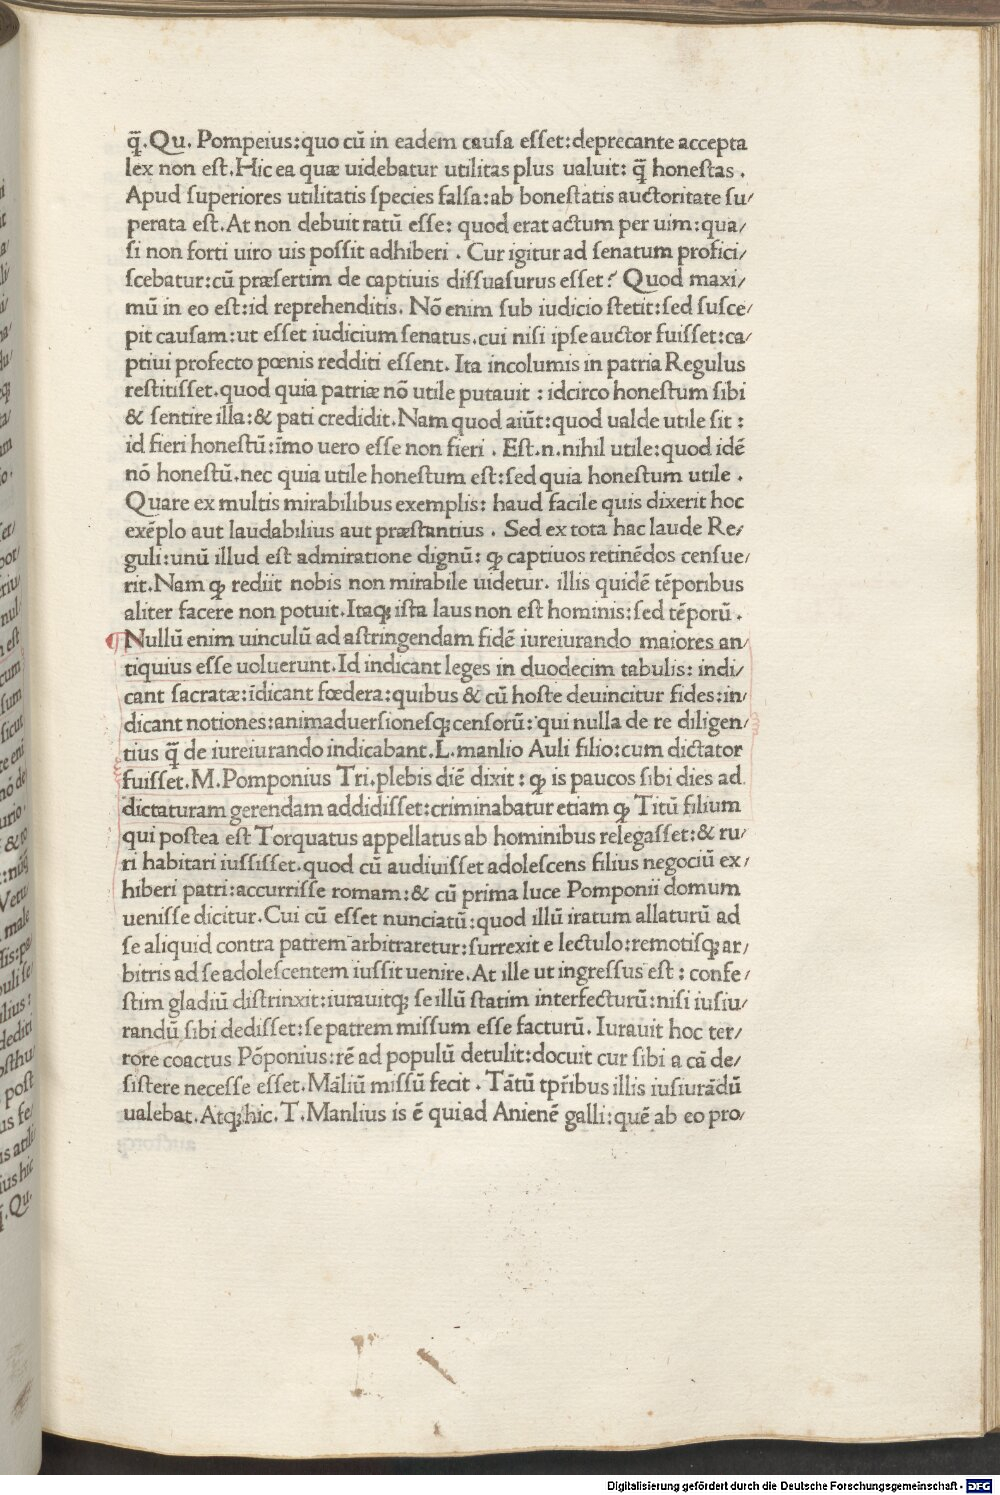 q̄. Qu. Pompeius: quo cū in eadem causa esset: deprecante accepta
lex non est. Hic ea quæ uidebatur utilitas plus ualuit: q̄ honestas .
Apud superiores utilitatis species falsa: ab bonestatis auctoritate su/
perata est. At non debuit ratū esse: quod erat actum per uim: qua/
si non forti uiro uis possit adhiberi . Cur igitur ad senatum profici/
scebatur: cū præsertim de captiuis dissuasurus esset? Quod maxi/
mū in eo est: id reprehenditis. Nō enim suo iudicio stetit: sed susce/
pit causam: ut esset iudicium senatus. cui nisi ipse auctor fuisset: ca/
ptiui profecto pœnis redditi essent. Ita incolumis in patria Regulus
restitisset. quod quia patriæ nō utile putauit : idcirco honestum sibi
& sentire illa: & pati credidit. Nam quod aiūt: quod ualde utile sit :
id fieri honestū: īmo uero esse non fieri . Est. n. nihil utile: quod idē
nō honestū. nec quia utile honestum est: sed quia honestum utile .
Quare ex multis mirabilibus exemplis: haud facile quis dixerit hoc
exēplo aut laudabilius aut præstantius . Sed ex tota hac laude Re/
guli: unū illud est admiratione dignū: ꝙ captiuos retinēdos censue/
rit. Nam ꝙ rediit nobis non mirabile uidetur. illis quidē tēporibus
aliter facere non potuit. Itaqꝫ ista laus non est hominis: sed tēporū .
¶ Nullū enim uinculū ad astringendam fidē iureiurando maiores an/
tiquius esse uoluerunt. Id indicant leges in duodecim tabulis: indi/
cant sacratæ: īdicant fœdera: quibus & cū hoste deuincitur fides: in/
dicant notiones: animaduersionesqꝫ censorū: qui nulla de re diligen/
tius q̄ de iureiurando indicabant. L. manlio Auli filio: cum dictator
fuisset. M. Pomponius Tri. plebis diē dixit : ꝙ is paucos sibi dies ad
dictaturam gerendam addidisset: criminabatur etiam ꝙ Titū filium
qui postea est Torquatus appellatus ab hominibus relegasset: & ru/
ri habitari iussisset. quod cū audiuisset adolescens filius negociū ex/
hiberi patri: accurrisse romam: & cū prima luce Pomponii domum
uenisse dicitur. Cui cū esset nunciatū: quod illū iratum allaturū ad
se aliquid contra patrem arbitraretur: surrexit e lectulo: remotisqꝫ ar/
bitris ad se adolescentem iussit uenire. At ille ut ingressus est : confe/
stim gladiū distrinxit: iurauitqꝫ se illū statim interfecturū: nisi iusiu/
randū sibi dedisset: se patrem missum esse facturū. Iurauit hoc ter/
rore coactus Pōponius: rē ad populū detulit: docuit cur sibi a cā de/
sistere necesse esset. Māliū missū fecit . Tātū tp̄ribus illis iusiurādū
ualebat. Atqꝫ hic. T. Manlius is ē qui ad Anienē galli: quē ab eo pro/
Digitalisierung gefördert durch die Deutsche Forschungsgemeinschaft - DFG